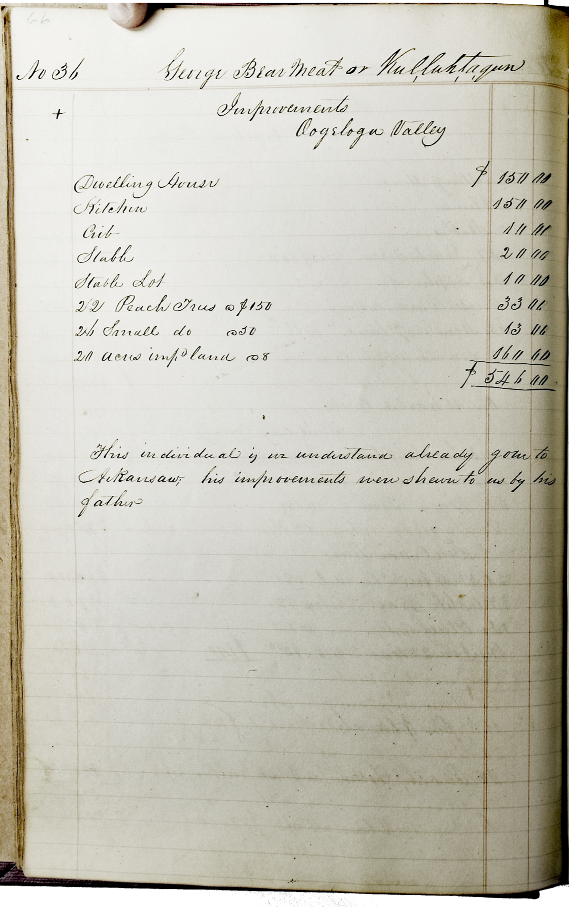 66
No 36 George Bear Meat or Kulluhtagun
+ Improvements
Oogeloga Valley
Dwelling House $ 150 00
Kitchin 150 00
Crib 10 00
Stable 20 00
Stable Lot 10 00
22 Peach Trees @ $1 50 33 00
26 Small do @ 50 13 00
20 acres impd land @ 8 160 00
$ 546 00
This individual is we understand already gone to
Arkansaw, his improvements were shewn to us by his
father